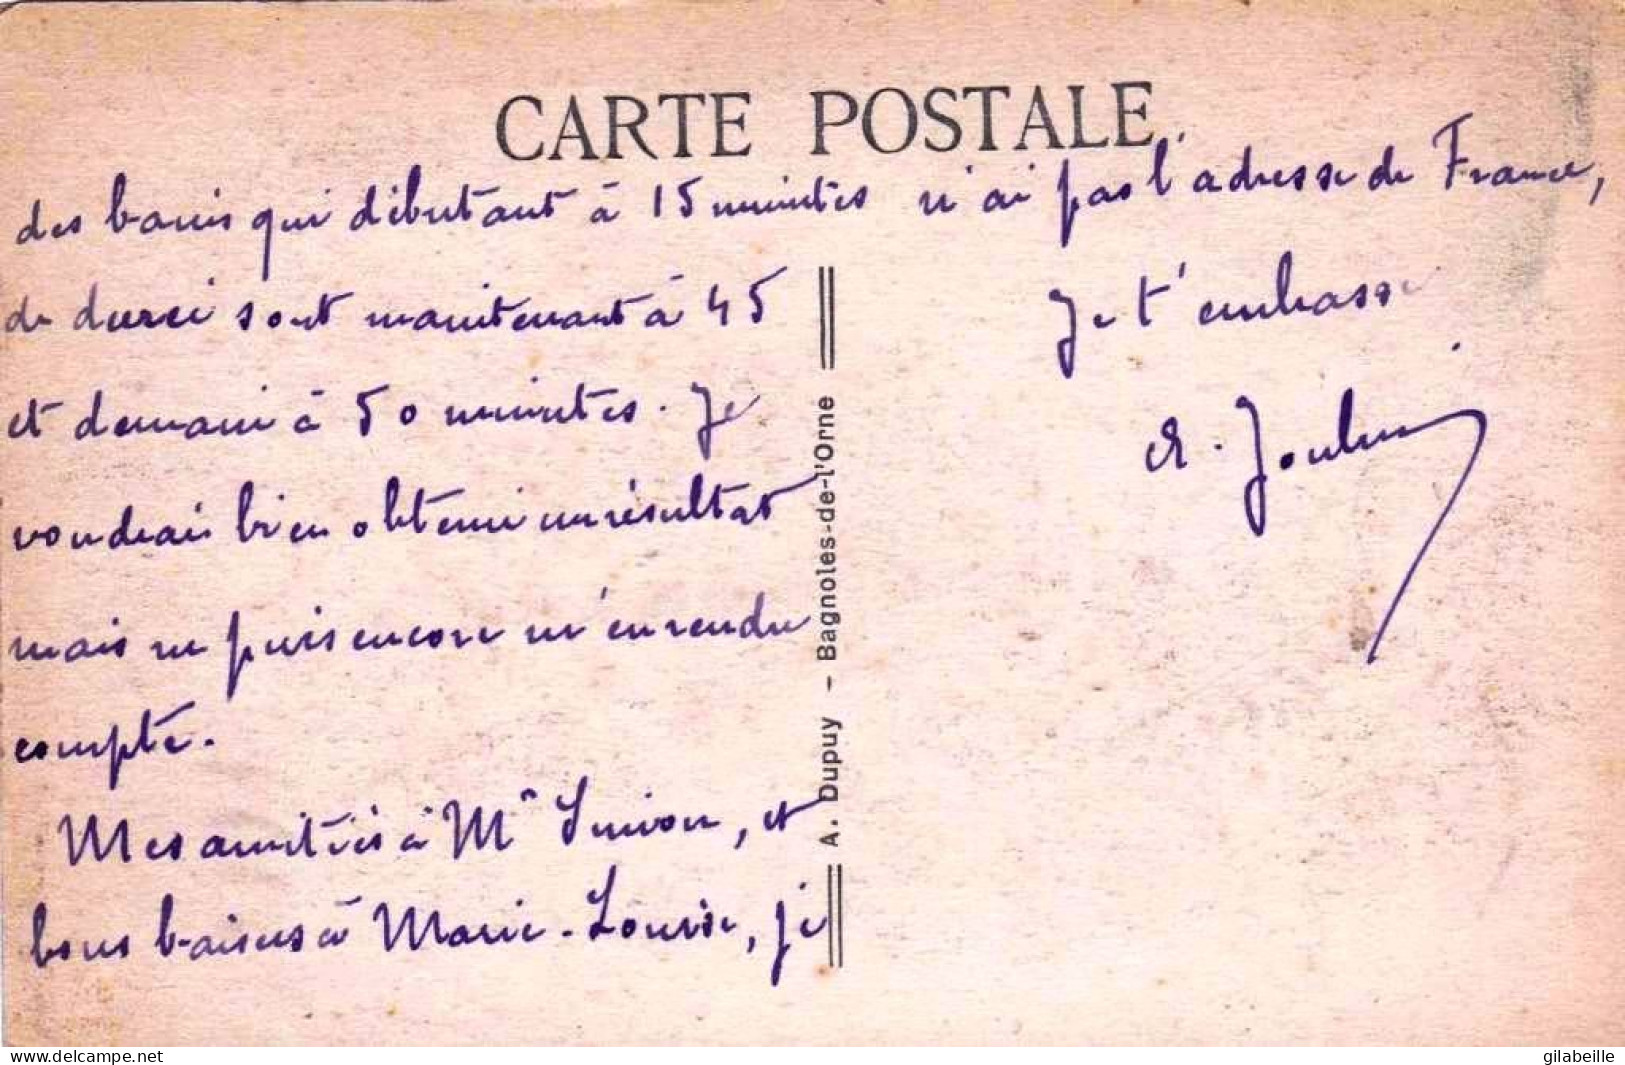 CARTE POSTALE
des bains qui débutant à 15 minutes
de durée sont maintenant à 45
et demain à 50 minutes. Je
voudrais bien obtenir un résultat
mais ne puis encore m'en rendre
compte.
Mes amitiés à Mr Simon, et
bons baisers à Marie-Louise, je
n'ai pas l'adresse de France,
Je t'embrasse
A. Dupuy - Bagnoles-de-l'Orne
www.delcampe.net
gilabeille